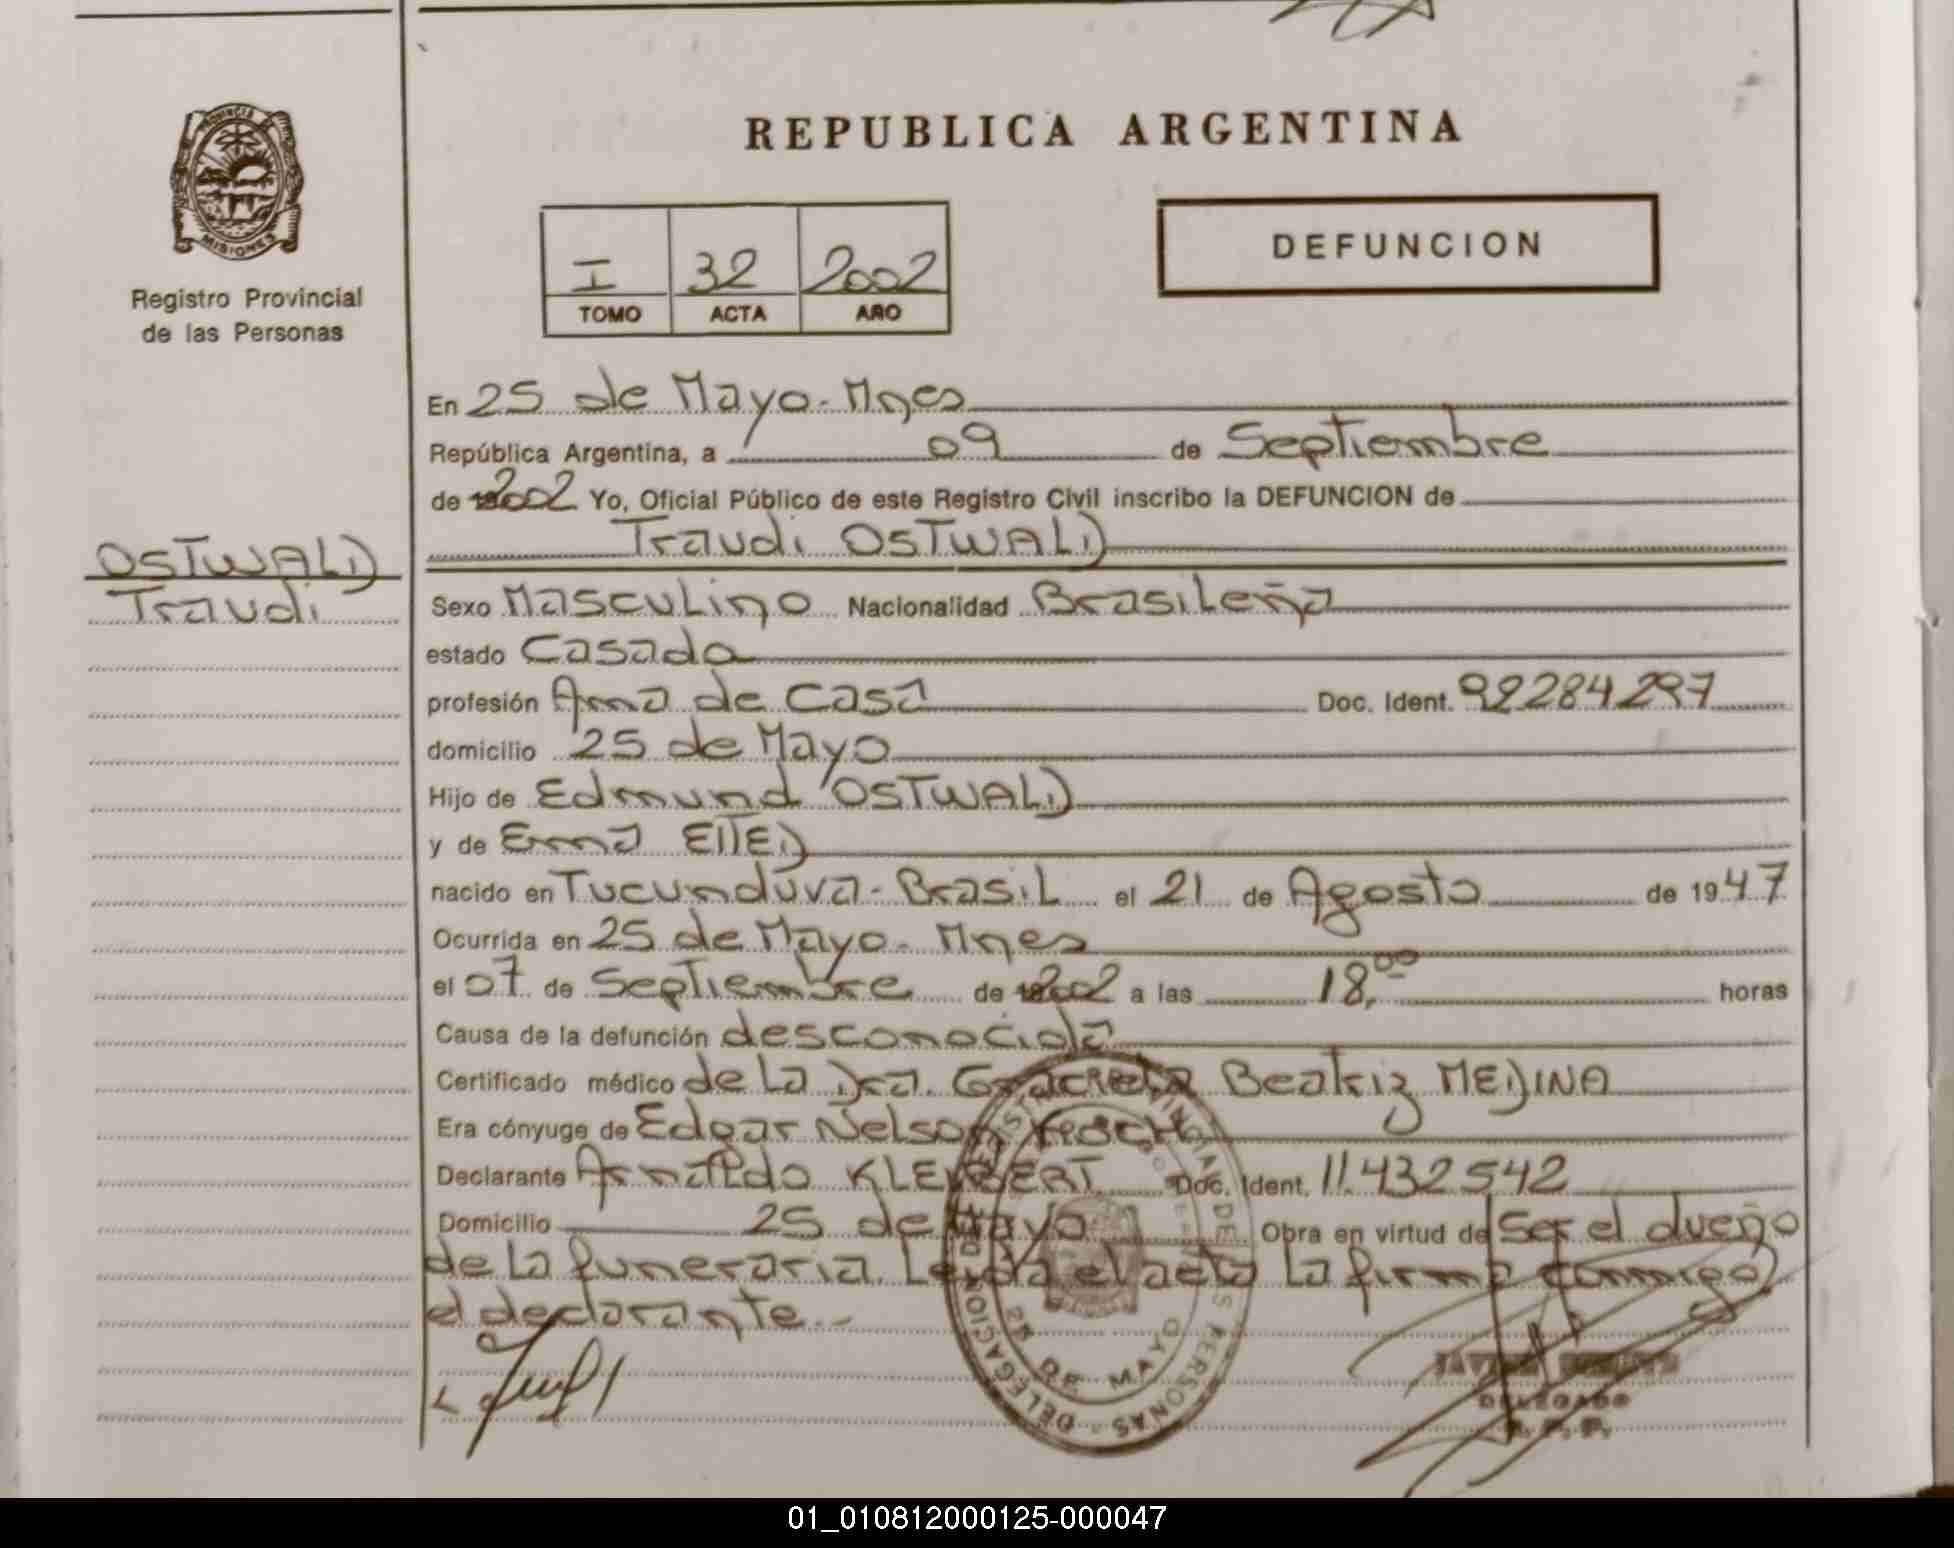 REPUBLICA ARGENTINA
PROVINCIA DE
MISIONES
Registro Provincial
de las Personas
I 32 2002
TOMO ACTA AÑO
DEFUNCION
En 25 de Mayo - Mnes
República Argentina, a 09 de Septiembre
de 2002 Yo, Oficial Público de este Registro Civil inscribo la DEFUNCION de
Traudi OSTWALD
OSTWALD
Traudi
Sexo Masculino Nacionalidad Brasileña
estado Casado
profesión Ama de Casa Doc. Ident. 92284297
domicilio 25 de Mayo
Hijo de Edmund OSTWALD
y de Erma EITED
nacido en Tucunduva - Brasil el 21 de Agosto de 1947
Ocurrida en 25 de Mayo - Mnes
el 07 de Septiembre de 2002 a las 18,00 horas
Causa de la defunción desconocida
Certificado médico de la Dra. Graciela Beatriz MEDINA
Era cónyuge de Edgar Nelson
Declarante Arnaldo KLEMBERT Doc. Ident. 11.432542
Domicilio 25 de Mayo Obra en virtud de Ser el dueño
de la funeraria. Leida el acta la firma conmigo
el declarante.-
25 DE MAYO
DELEGACION
PERSONAS
DELEGADO
R. P. P.
01_010812000125-000047